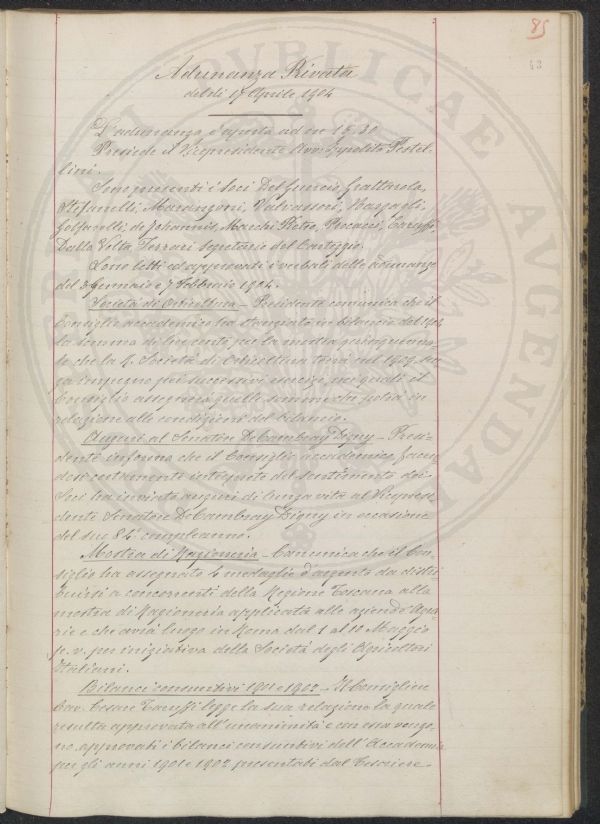 85
63
Adunanza Privata
del dì 17 Aprile 1904
L'adunanza è aperta ad ore 15,30
Presiede il Vicepresidente Avv. Ippolito Pestel-
lini.
Sono presenti i Soci Del Guercio, Grattarola,
Stefanelli, Marangoni, Valvassori, Bargagli,
Golfarelli, de Johannis, Marchi Pietro, Procacci, Taruffi,
Dalla Volta, Ferrari Segretario del Carteggio.
Sono letti ed approvati i verbali delle adunanze
del 3 Gennaio e 7 Febbraio 1904.
Società di Orticultura - Presidente comunica che il
Consiglio accademico ha stanziato in bilancio del 1904
la somma di lire cento, per la mostra quinquenna-
le che la R. Società di Orticultura terrà nel 1909 sen-
za impegno pei successivi esercizi, nei quali il
Consiglio assegnerà quelle somme che potrà in
relazione alle condizioni del bilancio.
Auguri al Senatore De Cambray Digny - Presi-
dente informa che il Consiglio accademico facen-
dosi certamente interprete del sentimento dei
Soci ha inviato auguri di lunga vita al Vicepresi-
dente Senatore De Cambray Digny in occasione
del suo 84° compleanno.
Mostra di Ragioneria - Comunica che il Con-
siglio ha assegnato 6 medaglie d'argento da distri-
buirsi a concorrenti della Regione Toscana alla
mostra di Ragioneria applicata alle aziende Agra-
rie e che avrà luogo in Roma dal 1 al 10 Maggio
p. v. per iniziativa della Società degli Agricoltori
Italiani.
Bilanci consuntivi 1901 e 1902 - Il Consigliere
Cav. Cesare Taruffi legge la sua relazione la quale
resulta approvata all'unanimità e con essa vengo-
no approvati i bilanci consuntivi dell'Accademia
per gli anni 1901 e 1902 presentati dal Tesoriere.
PUBLICAE
AUGENDAE